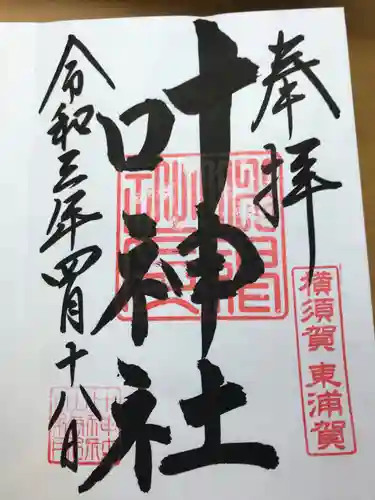 奉拝
横須賀東浦賀
叶神社
令和三年四月十八日